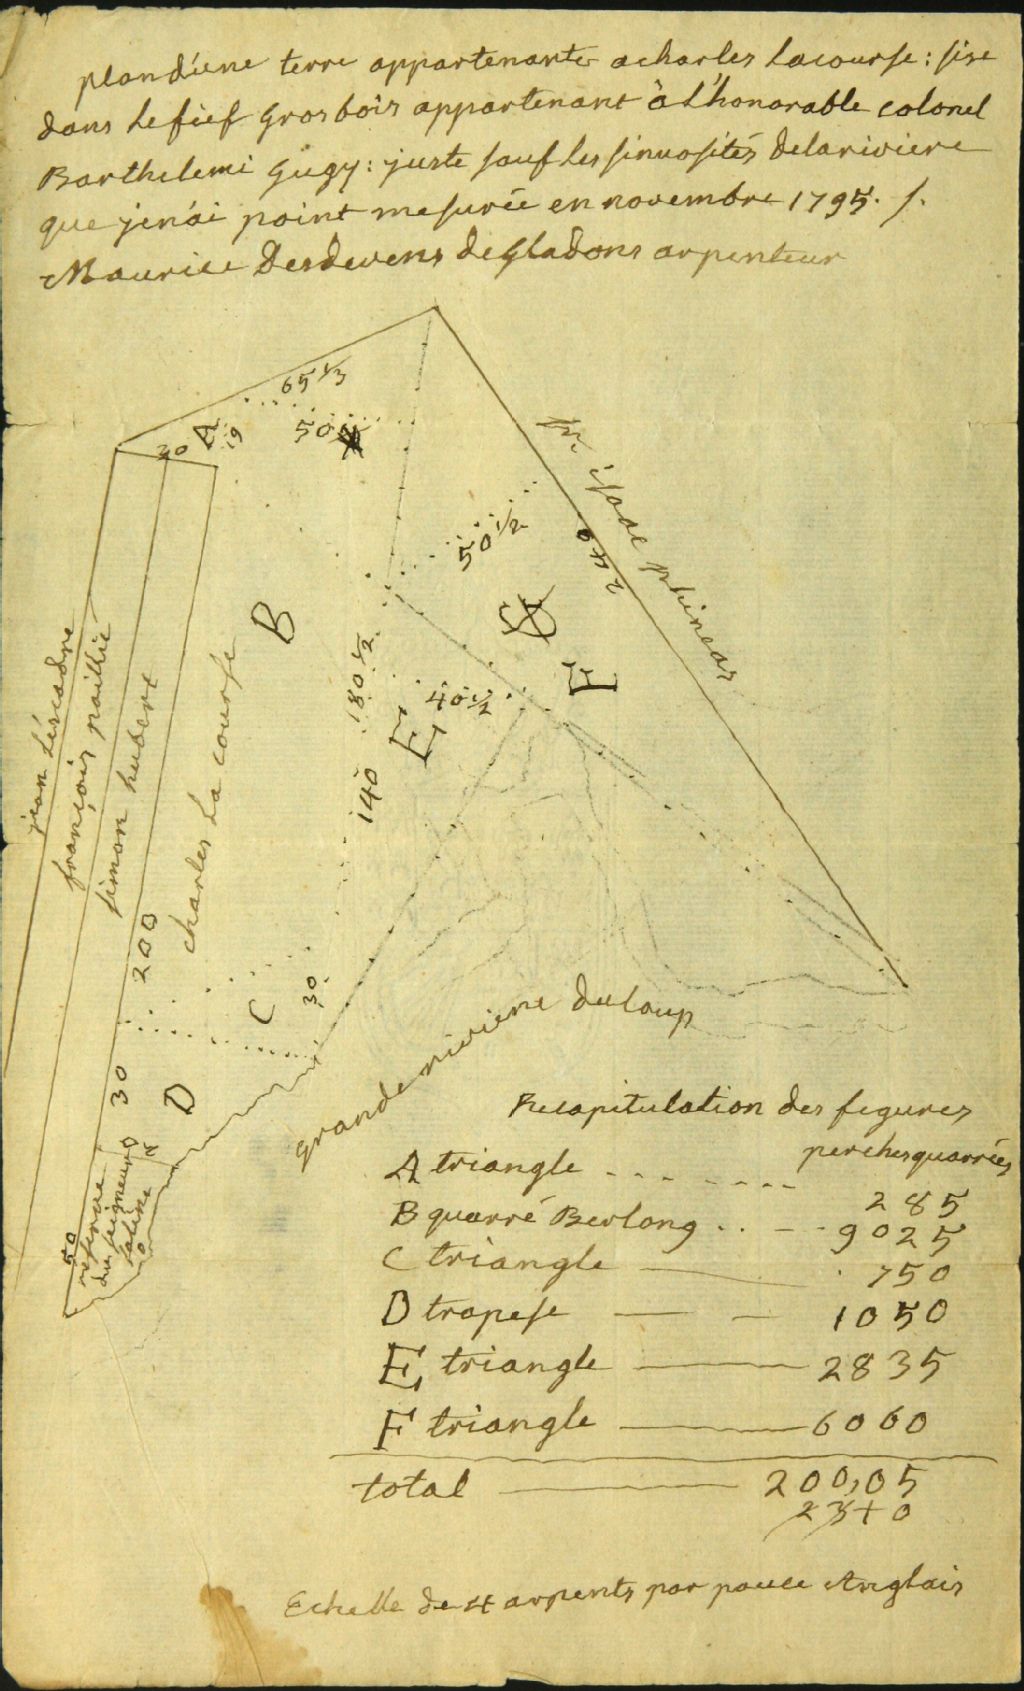 plan d'une terre appartenante a charles lacourse : sise
dans le fief grosbois appartenant à l'honorable colonel
Barthelemi Gugy : juste sauf les sinuosités de la riviere
que je n'ai point mesurée en novembre 1795. /.
Maurice Desdevens de glandons arpenteur
65 1/3
30 A 19
50
50 1/2
mr. isaac phineas
240
B
F
180 1/2
40 1/2
E
140
jean
françois paillié
simon hubert
charles La course
200
C
30
30
D
grande riviere du loup
50
reserve
du seigneur
Recapitulation des figures
perches quarrées
A triangle - - - - - - - 285
B quarré Berlong . . - - 9025
C triangle — 750
D trapese — — 1050
E triangle — 2835
F triangle — 6060
total — 200,05
Echelle de 4 arpents par pouce Anglais